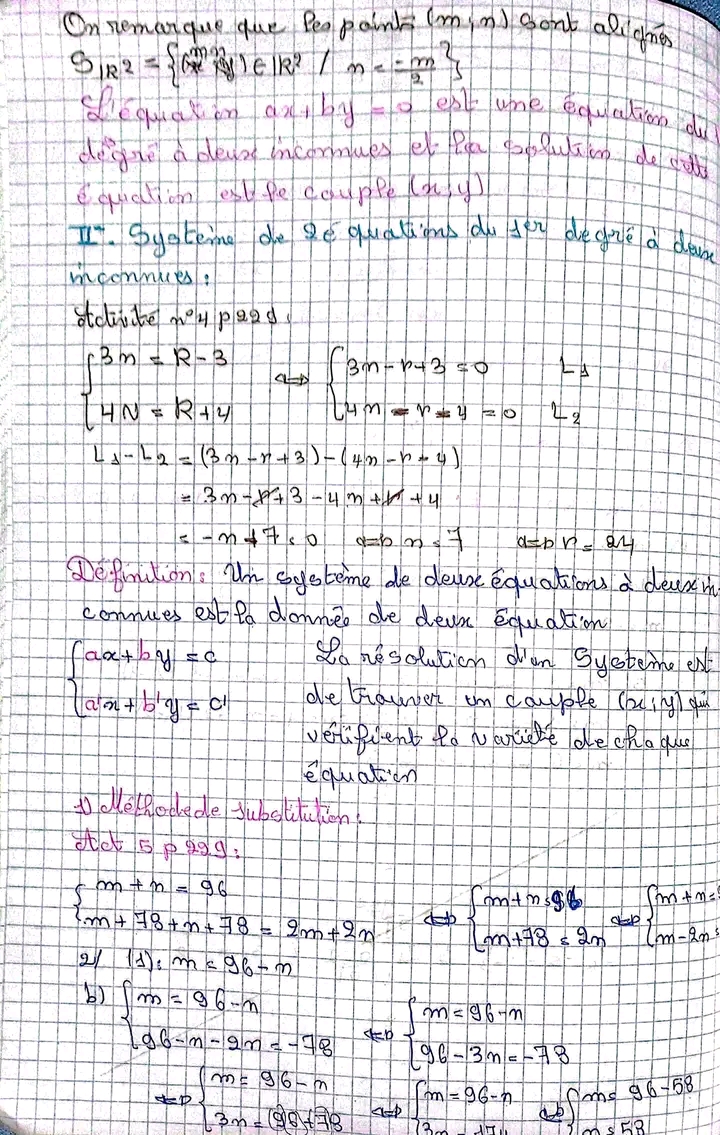 On remarque que les points (m, n) sont alignés
S_IR² = {(m n) ∈ IR² / n = -m/2}
L'équation ax + by = 0 est une équation du
dégré à deux inconnues et la solution de cette
équation est le couple (x, y)
II. Système de 2 équations du 1er degré à deux
inconnues :
Activité n°4 p 229.
{3n = R - 3 <=> {3n - r + 3 = 0 L1
{4N = R + 4 {4n - r - 4 = 0 L2
L1 - L2 = (3n - r + 3) - (4n - r - 4)
= 3n - r + 3 - 4n + r + 4
= -n + 7 = 0 <=> n = 7 <=> r = 24
Définition : Un système de deux équations à deux in
connues est la donnée de deux équation
{ax + by = c La résolution d'un Système est
{a'x + b'y = c' de trouver un couple (x, y) qui
vérifient la varieté de chaque
équation
1) Méthode de substitution :
Act 5 p 229 :
{m + n = 96 <=> {m + n = 96 <=> {m + n =
{m + 78 + n + 78 = 2m + 2n {m + 78 = 2n {m - 2n =
2/ (1) : m = 96 - n
b) {m = 96 - n <=> {m = 96 - n
{96 - n - 2n = -78 {96 - 3n = -78
<=> {m = 96 - n <=> {m = 96 - n <=> {m = 96 - 58
{3n = (96 + 78 {3n = 174 {n = 58